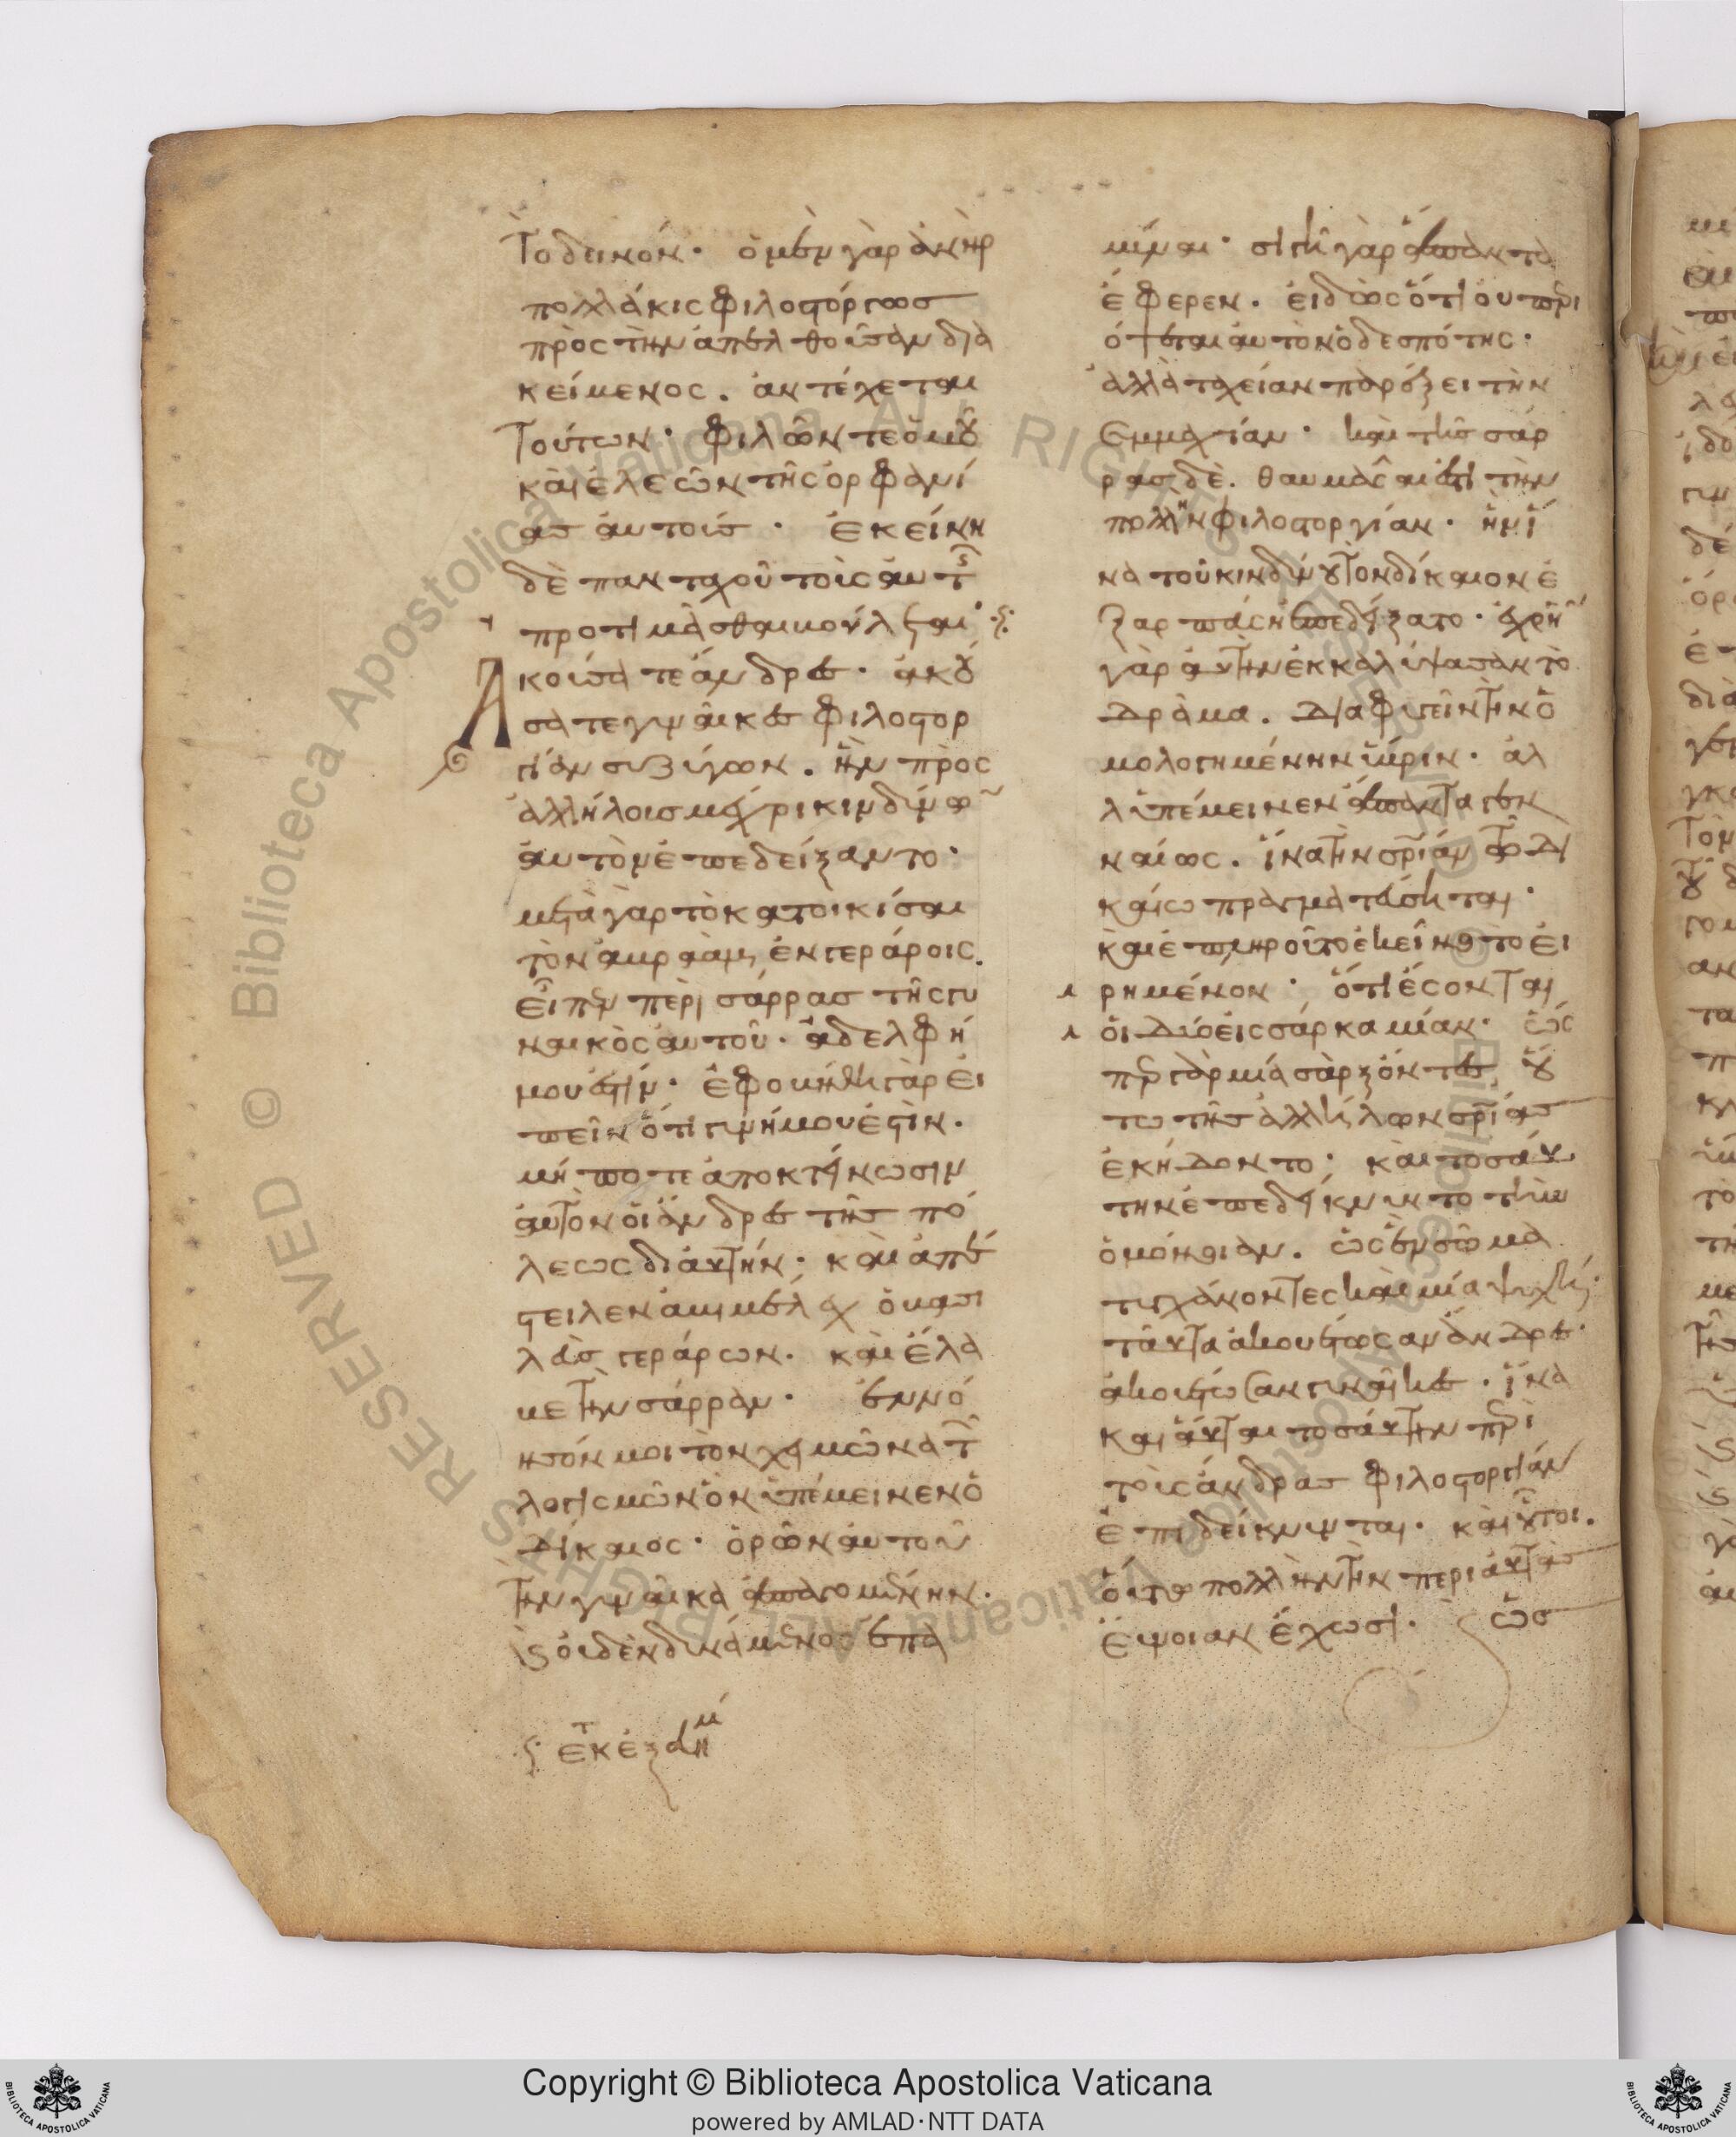 Τὸ δεινόν· ὁ μὲν γὰρ ἀνὴρ
πολλάκις φιλοστόργως
πρὸς τὴν ἀπελθοῦσαν δια
κείμενος. ἀντέχεται
τούτων· φιλῶν τε ὁμοῦ
καὶ ἐλεῶν τῆς ὀρφανί
ας αὐτούς· ἐκείνη
δὲ πανταχοῦ τοὺς αὐτῆς
προτιμᾶσθαι βούλεται·
Ἀκούσατε ἄνδρες· ἀκού
σατε γυναῖκες φιλοστορ
γίαν συζύγων. ἣν πρὸς
ἀλλήλους μέχρι κινδύνων
αὐτῶν ἐπεδείξαντο·
μετὰ γὰρ τὸ κατοικίσαι
τὸν ἀβραὰμ ἐν γεράροις.
εἶπεν περὶ σάρρας τῆς γυ
ναικὸς αὐτοῦ· ἀδελφή
μού ἐστιν· ἐφοβήθη γὰρ εἰ
πεῖν ὅτι γυνή μού ἐστιν.
μή ποτε ἀποκτείνωσιν
αὐτὸν οἱ ἄνδρες τῆς πό
λεως δι αὐτήν· καὶ ἀπέ
στειλεν ἀβιμέλεχ ὁ βασι
λεὺς γεράρων. καὶ ἔλα
βε τὴν σάρραν· ἐννό
ησόν μοι τὸν χειμῶνα τῶν
λογισμῶν ὃν ὑπέμεινεν ὁ
δίκαιος· ὁρῶν αὐτοῦ
τὴν γυναῖκα ἀπαγομένην.
καὶ οὐδὲν δυνάμενος ἐπα
μῦναι· σιγῇ γὰρ ἅπαντα
ἔφερεν. εἰδὼς ὅτι οὐ περι
όψεται αὐτὸν ὁ δεσπότης·
ἀλλὰ ταχεῖαν παρέξει τὴν
συμμαχίαν· καὶ τῆς σάρ
ρας δὲ. θαυμάσαι ἔστι τὴν
πολλὴν φιλοστοργίαν· ἣν ἵ
να τοῦ κινδύνου τὸν δίκαιον ἐ
ξαρπάση ἐπεδείξατο· ἐχρῆν
γὰρ αὐτὴν ἐκκαλύψασαν τὸ
δρᾶμα. διαφυγεῖν τὴν ὁ
μολογημένην ὕβριν· ἀλ
λ ὑπέμεινεν ἅπαντα γεν
ναίως. ἵνα τὴν σωτηρίαν τῷ δι
καίω πραγματεύσηται·
καὶ ἐπληροῦτο ἐκεῖνο τὸ εἰ
ρημένον· ὅτι ἔσονται
οἱ δύο εἰς σάρκα μίαν· ὥς
περ γὰρ μία σὰρξ ὄντες οὕ
τω τῆς ἀλλήλων σωτηρίας
ἐκήδοντο· καὶ τοσαύ
την ἐπεδείκνυντο τὴν
ὁμόνοιαν. ὡς ἓν σῶμα
τυγχάνοντες καὶ μία ψυχή·
ταῦτα ἀκουέτωσαν ἄνδρες·
ἀκουέτωσαν γυναῖκες· ἵνα
καὶ αὗται τοσαύτην περὶ
τοὺς ἄνδρας φιλοστοργίαν
ἐπιδείκνυνται· καὶ οὗτοι.
οὕτω πολλὴν τὴν περὶ αὐτὰς
εὔνοιαν ἔχωσι· ὡς